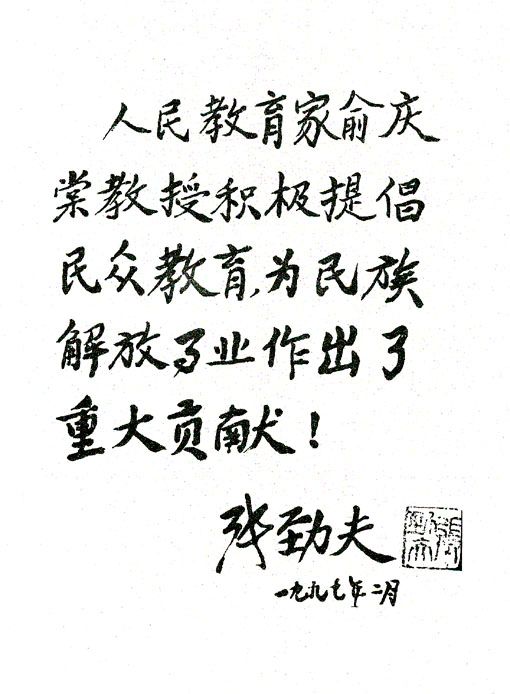 人民教育家俞庆
棠教授积极提倡
民众教育,为民族
解放事业作出了
重大贡献!
张劲夫
一九九七年二月